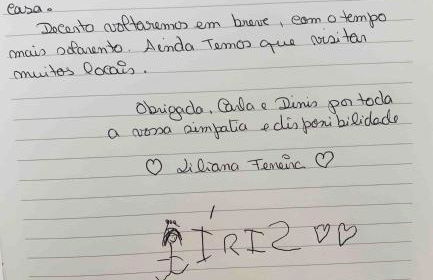 casa.
Decerto voltaremos em breve, com o tempo
mais soarento. Ainda Temos que visitar
muitos locais.
Obrigada, Carla e Dinis por toda
a vossa simpatia e disponibilidade
♡ Liliana Ferreira ♡
ÍRIS ♡♡